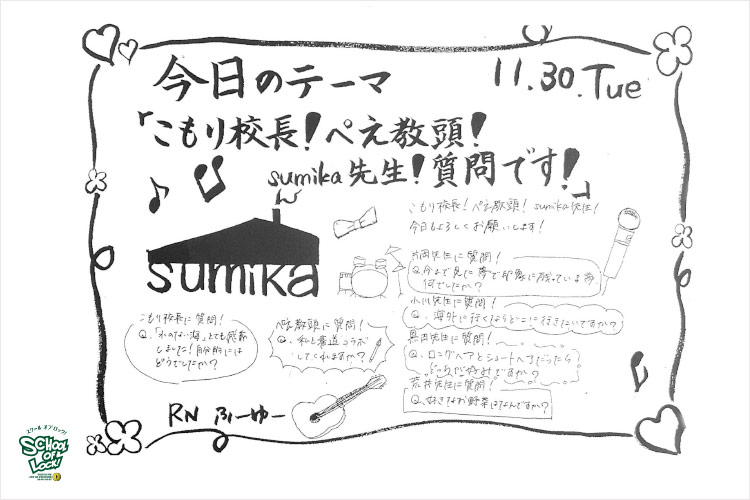 今日のテーマ
11.30.Tue
「こもり校長!ぺえ教頭!
sumika先生!質問です!」
こもり校長!ぺえ教頭!sumika先生!
今日もよろしくお願いします!
sumika
片岡先生に質問!
Q.今まで見た夢で印象に残っている夢
何でしたか?
小川先生に質問!
Q.海外に行くならどこに行きたいですか?
黒田先生に質問!
Q.ロングヘアとショートヘアだったら
どっちが好みですか?
荒井先生に質問!
Q.好きなお野菜はなんですか?
こもり校長に質問!
Q.「れのない海」とても感動
しました!自分的には
どうでしたか?
ぺえ教頭に質問!
Q.私と書道コラボ
してくれますか?
RN ふーゆー
スクールオブロック!
SCHOOL
OF
LOCK!